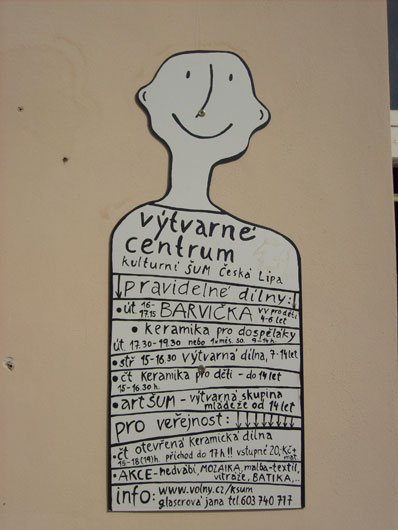 výtvarné
centrum
kulturní ŠUM česká Lípa
pravidelné dílny:
• út. 16-17.15 BARVIČKA vv pro děti 4-6 let
• keramika pro dospěláky
út. 17.30-19.30 nebo 1x měs. so. 9-14h.
• stř 15-16.30 výtvarná dílna, 7-14 let
• čt keramika pro děti - do 14 let
15-16.30 h.
• art ŠUM - výtvarná skupina
mládeže od 14 let
pro veřejnost:
• čt otevřená keramická dílna
15-18(19)h. příchod do 17h!! vstupné 20,-Kč + mat.
• AKCE - hedvábí, MOZAIKA, malba-textil,
vitráže, BATIKA,...
info: www.volny.cz/ksum
glaserová jana tel 603 740 717